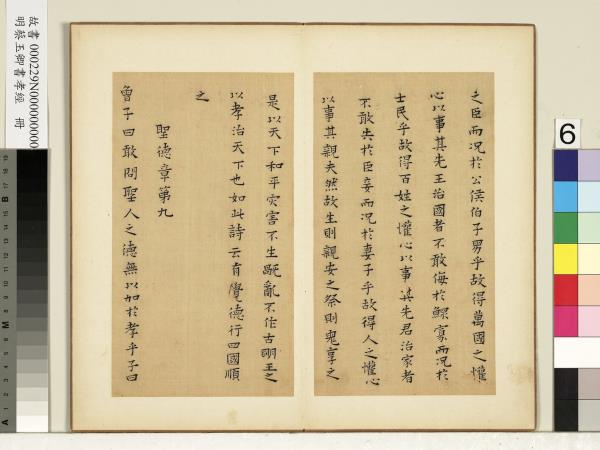 之臣而況扵公侯伯子男乎故得萬國之懽
心以事其先王治國者不敢侮扵鰥寡而況扵
士民乎故得百姓之懽心以事其先君治家者
不敢失扵臣妾而況扵妻子乎故得人之懽心
以事其親夫然故生則親安之祭則鬼享之
是以天下和平災害不生禍亂不作古明王之
以孝治天下也如此詩云有覺德行四國順
之
聖德章第九
曾子曰敢問聖人之德無以加扵孝乎子曰
故書 000229N000000000
明蔡玉卿書孝經 冊
6